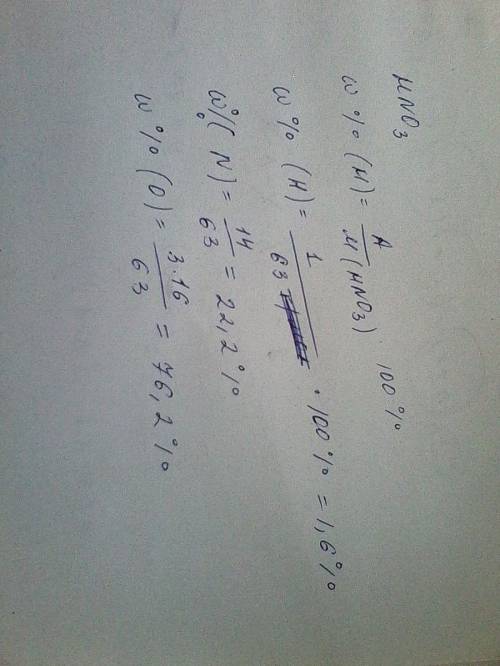 HNO₃
W % (H) = A / M (HNO₃) · 100%
W % (H) = 1 / 63 · 100% = 1,6%
W % (N) = 14 / 63 = 22,2%
W % (O) = 3·16 / 63 = 76,2%